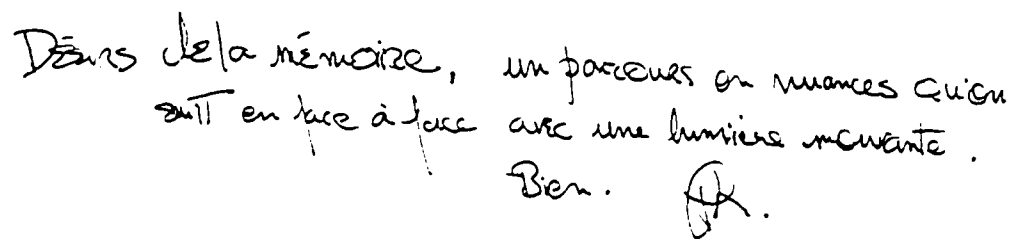 Désirs de la mémoire, un parcours en nuances qu'on
suit en face à face avec une lumière mouvante.
Bien. AK.